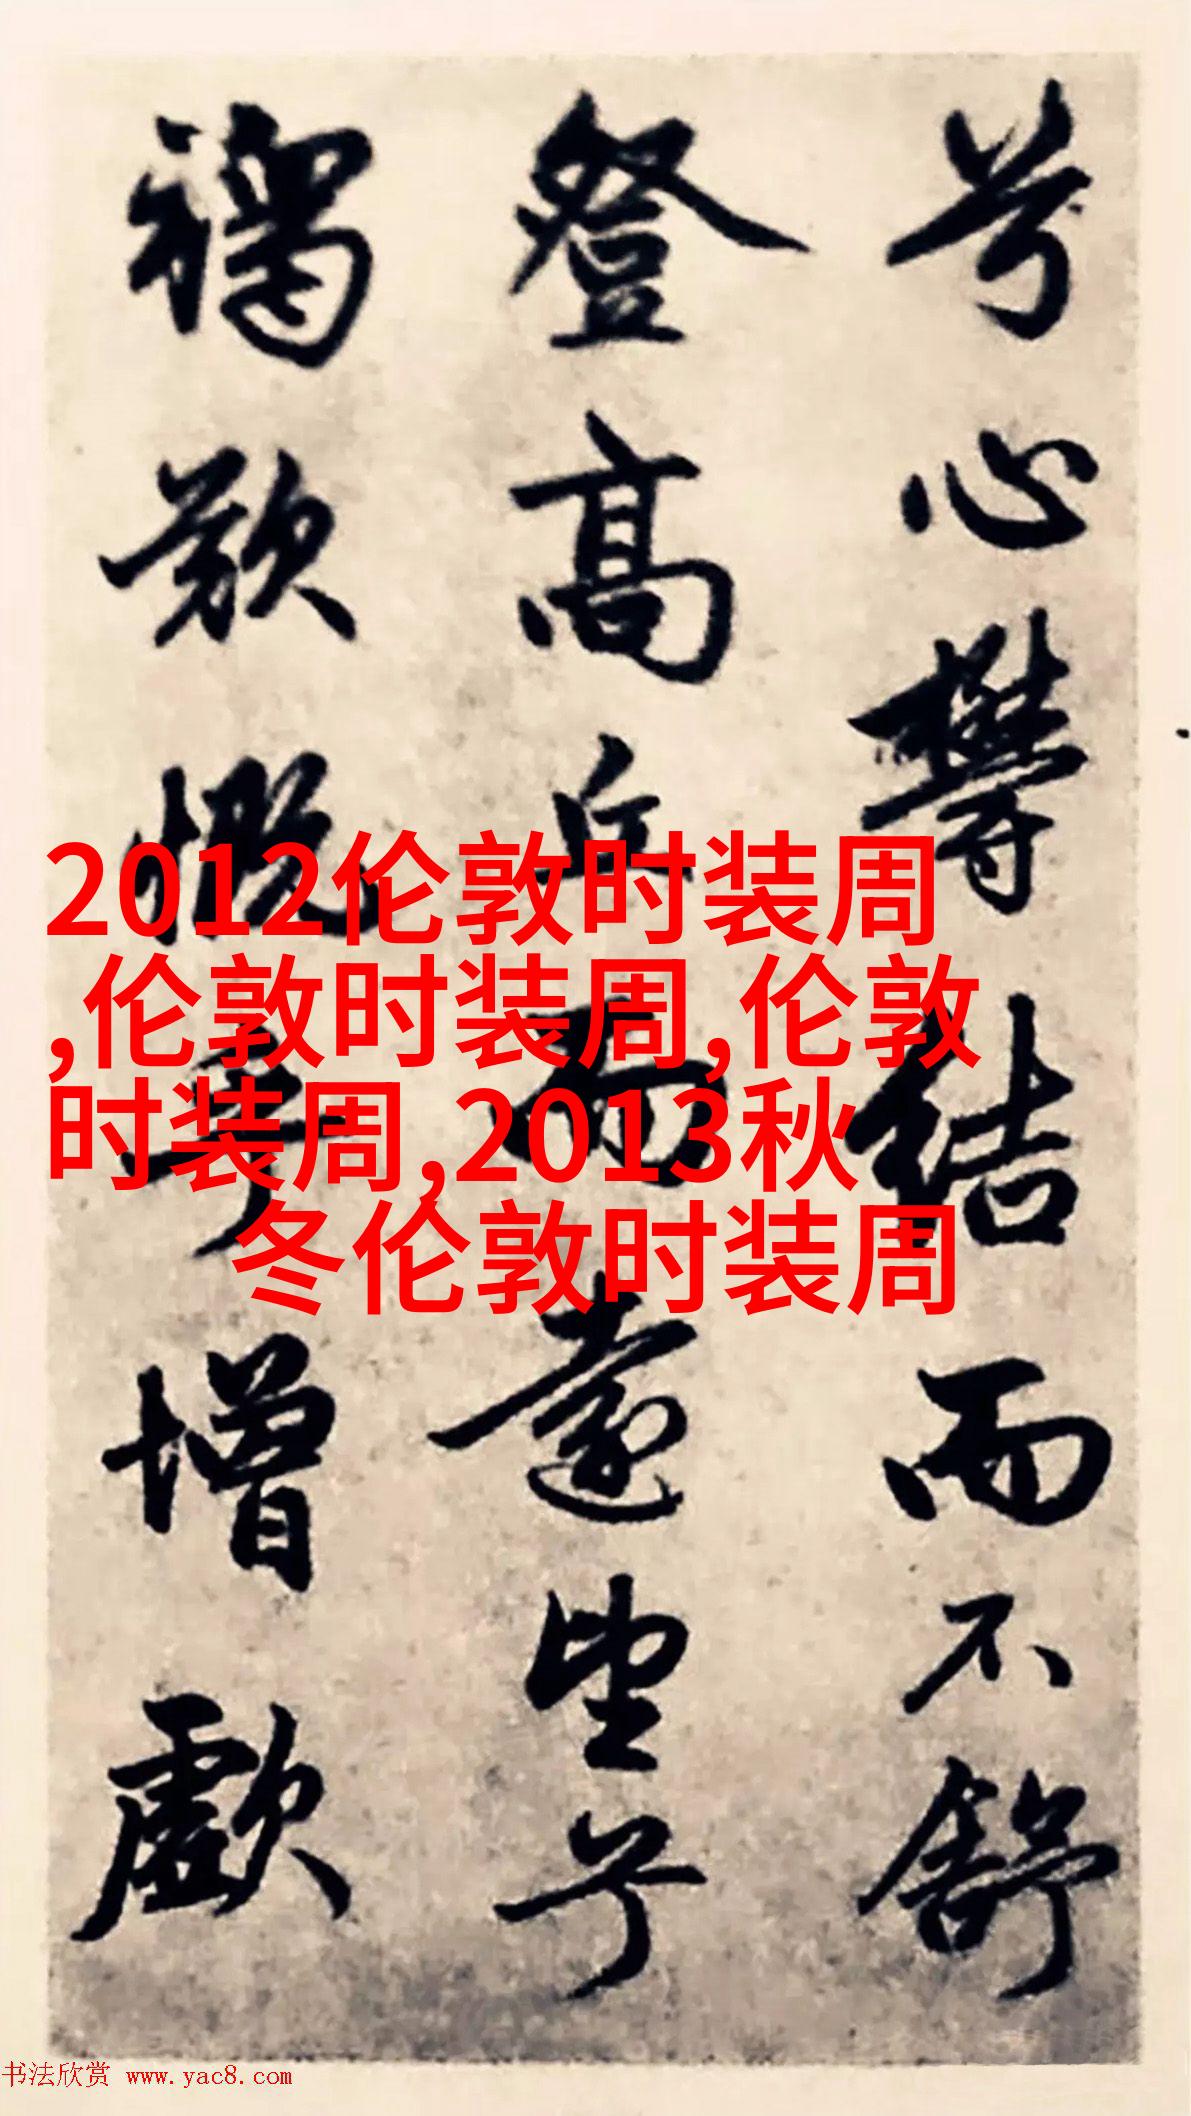 兮心欝結而不舒
登高丘而遠望兮
欷慨乎增歔
2012伦敦时装周
,伦敦时装周,伦敦
时装周,2013秋
冬伦敦时装周
书法欣赏 www.yac8.com